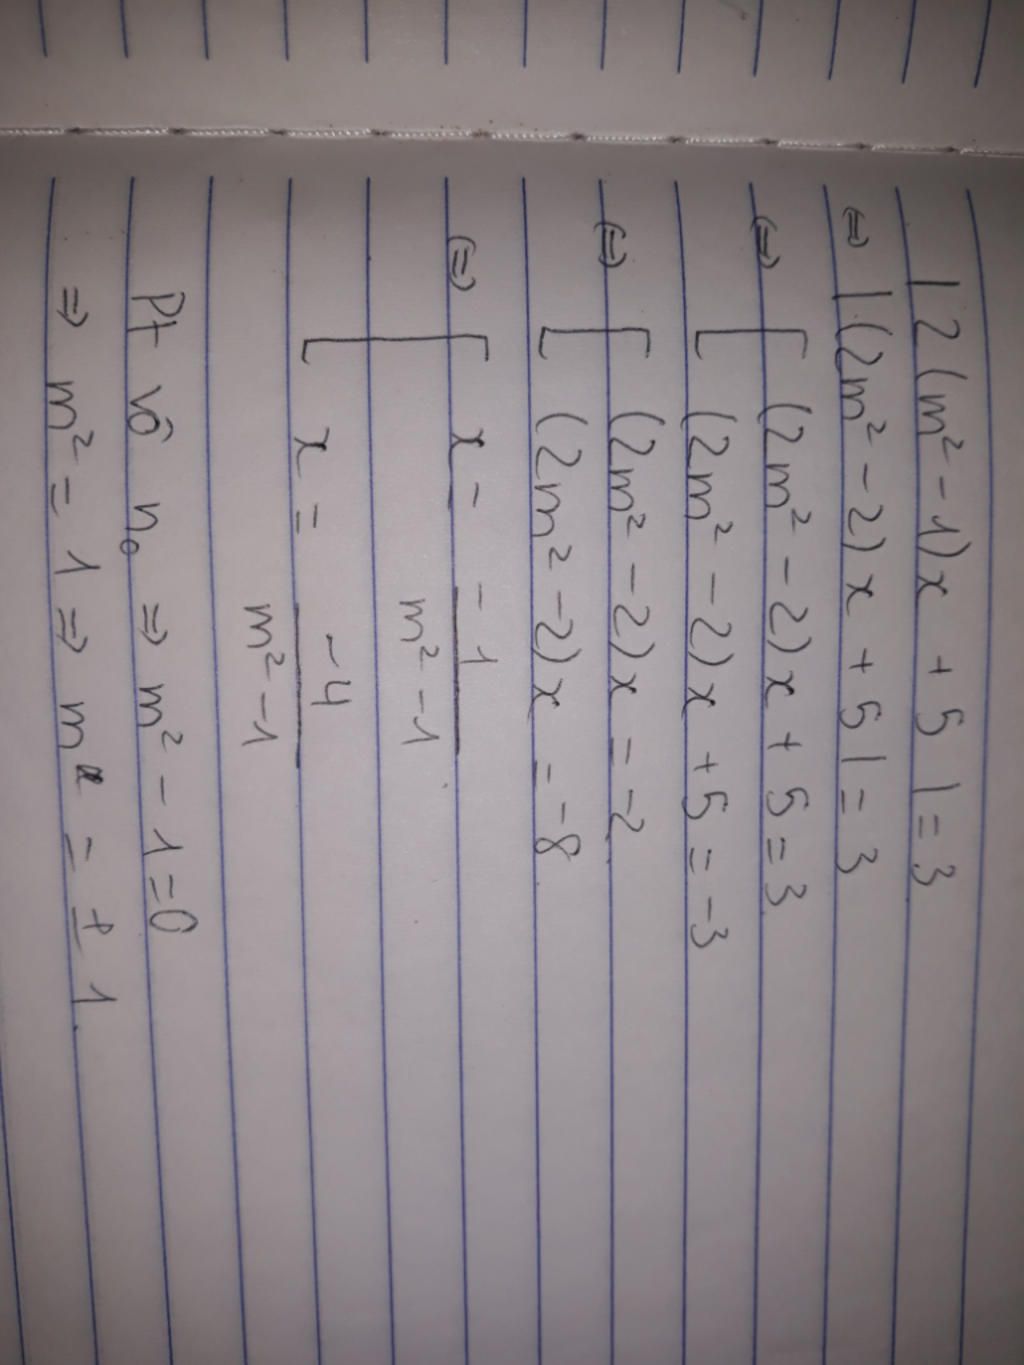 |2(m² - 1)x + 5| = 3
⇔ |(2m² - 2)x + 5| = 3
⇔ [ (2m² - 2)x + 5 = 3
(2m² - 2)x + 5 = -3
⇔ [ (2m² - 2)x = -2
(2m² - 2)x = -8
⇔ [ x = -1 / m² - 1
x = -4 / m² - 1
Pt vô n₀ ⇒ m² - 1 = 0
⇒ m² = 1 ⇒ m = ± 1